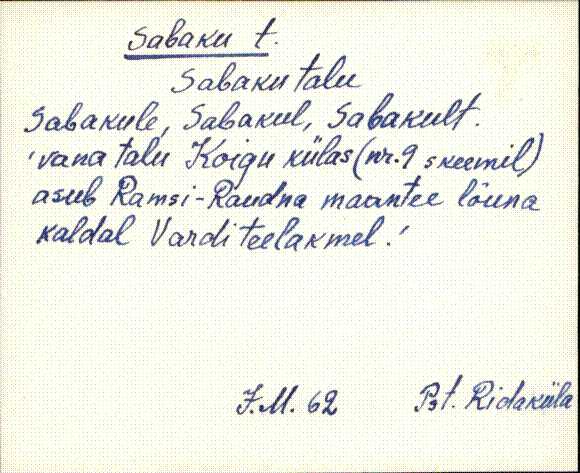 Sabaku t.
Sabaku talu
Sabakule, Sabakul, Sabakult.
'vana talu Koigu külas (nr. 9 skeemil)
asub Ramsi-Raudna maantee lõuna
kaldal Vardi teelakmel.'
J.M. 62 Pst. Ridaküla